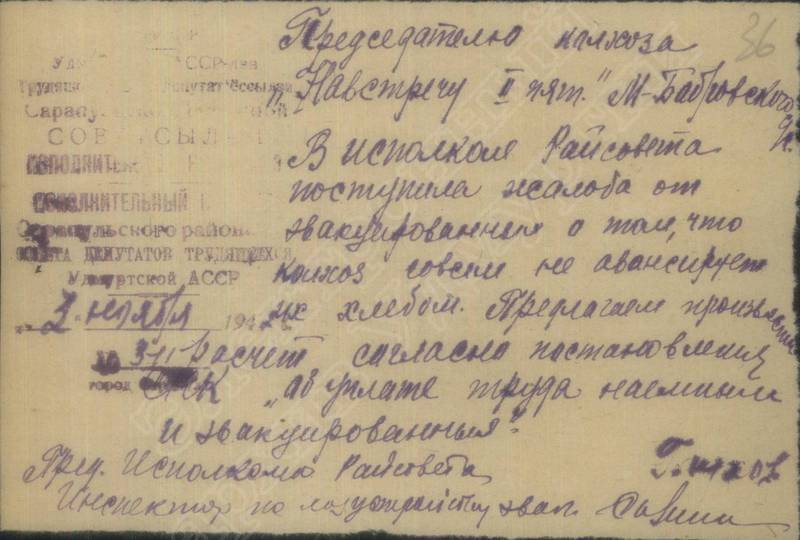 36
Председателю калхоза
"Навстречу II пят." М-Бабровского
В исполком Райсовета
поступила жалоба от
эвакуированных о том, что
калхоз совсем не авансирует
их хлебом. Предлагаем произвести
Расчет согласно постановления
СНК „аб уплате труда наемным
и эвакуированным".
Пред. Исполкома Райсовета
Инспектор по эвак.
ИСПОЛНИТЕЛЬНЫЙ
Сарапульского района
СОВЕТА ДЕПУТАТОВ ТРУДЯЩИХСЯ
Удмуртской АССР
2 ноября 194
ГОРОД